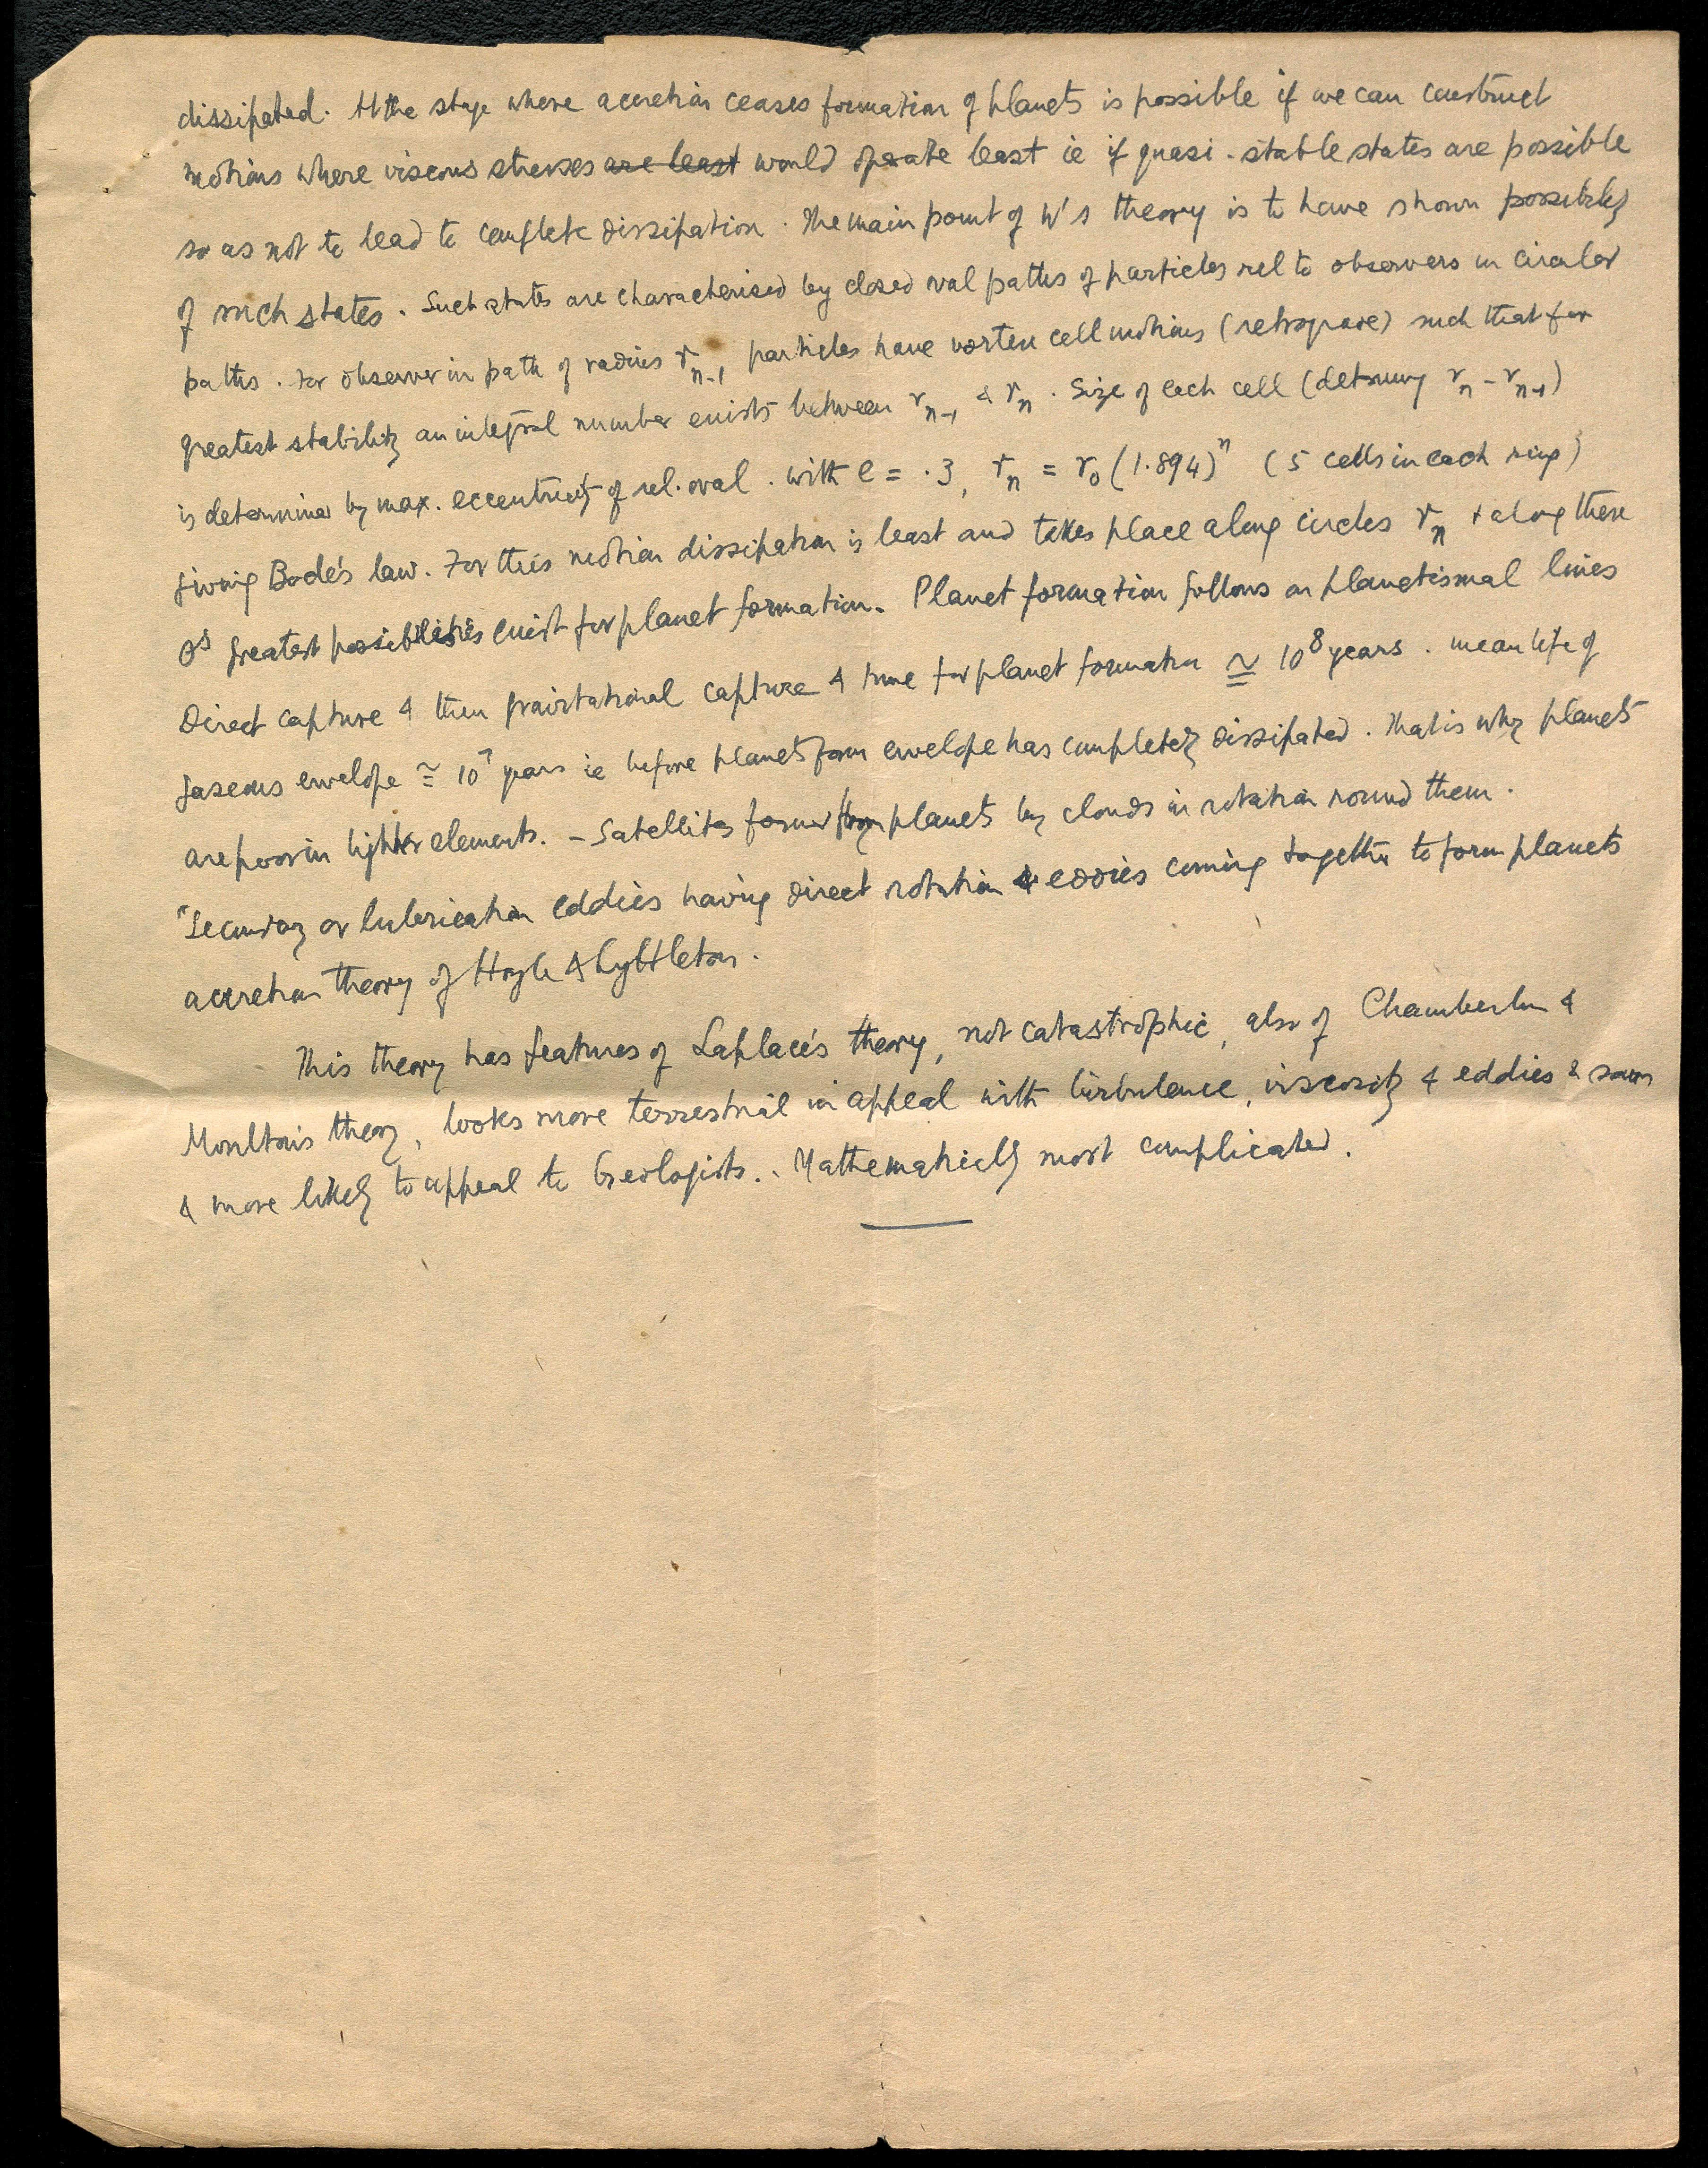 dissipated. At the stage where accretion ceases formation of planets is possible if we can construct
motions where viscous stresses are least would operate least ie if quasi-stable states are possible
so as not to lead to complete dissipation. The main point of W's theory is to have shown possibility
of such states. Such states are characterised by closed oval paths of particles rel to observers in circular
paths. For observer in path of radius r_{n-1} particles have vortex cell motions (retrograde) such that for
greatest stability an integral number exists between r_{n-1} & r_n. Size of each cell (determing r_n - r_{n-1})
is determined by max. eccentricity of rel. oval. with e = .3, r_n = r_0 (1.894)^n (5 cells in each ring)
giving Bode's law. For this motion dissipation is least and takes place along circles r_n & along these
⊙s greatest possibilities exist for planet formation. Planet formation follows on planetismal lines
Direct capture & then gravitational capture & time for planet formation ≅ 10^8 years. mean life of
gaseous envelope ≅ 10^7 years ie before planets form envelope has completely dissipated. That is why planets
are poor in lighter elements. – Satellites formed from planets by clouds in rotation round them.
"Secondary or lubrication eddies having direct rotation & eddies coming together to form planets
accretion theory of Hoyle & Lyttleton.
This theory has features of Laplace's theory, not catastrophic, also of Chamberlin &
Moulton's theory, looks more terrestrial in appeal with turbulence, viscosity &  eddies &
& more likely to appeal to Geologists. Mathematically most complicated.